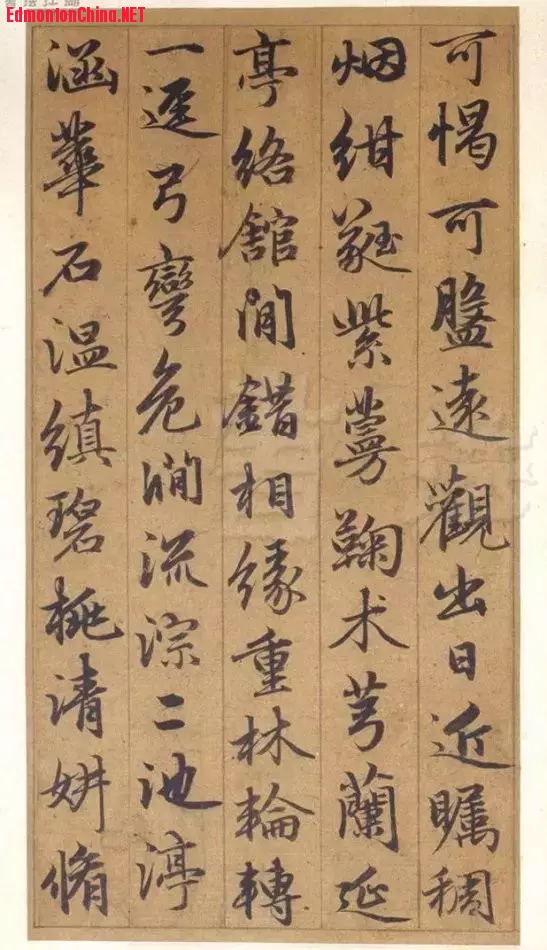 EdmontonChina.NET
可愒可盤遠觀出日近矚稠
烟紺蕤紫鞠术芎蘭延
亭絡館間錯相緣重林輪轉
一逕弓彎危澗流淙二池渟
涵華石温縝碧桃清妍脩